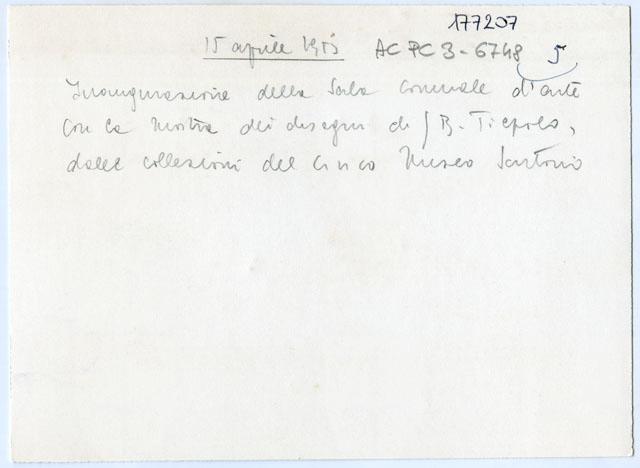 177207
15 aprile 1953 ACPC3-6748 5
Inaugurazione della Sala Comunale d'arte
con la mostra dei disegni di G B. Tiepolo,
dalle collezioni del Civico Museo Sartorio